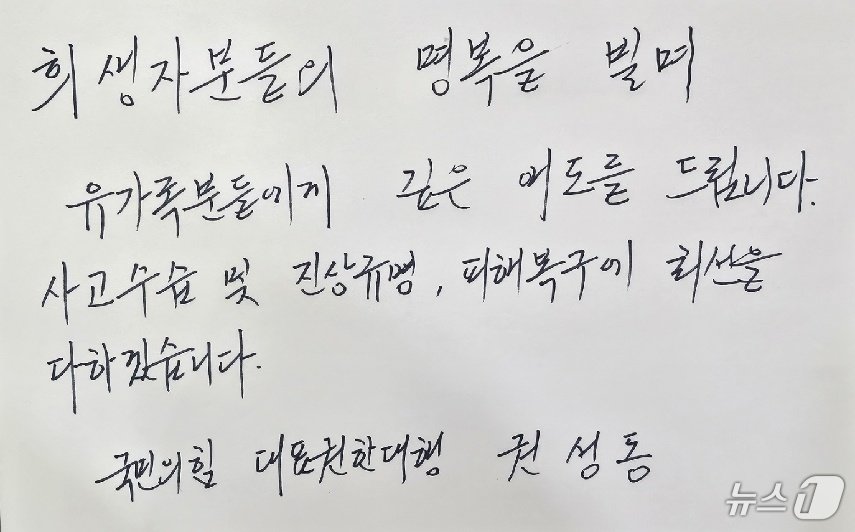 희생자분들의 명복을 빌며
유가족분들에게 깊은 애도를 드립니다.
사고수습 및 진상규명, 피해복구에 최선을
다하겠습니다.
국민의힘 대표권한대행 권성동
뉴스1